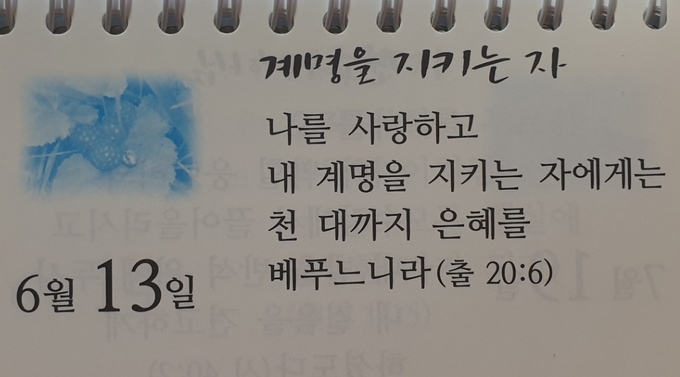 계명을 지키는 자
나를 사랑하고
내 계명을 지키는 자에게는
천 대까지 은혜를
베푸느니라(출 20:6)
6월 13일